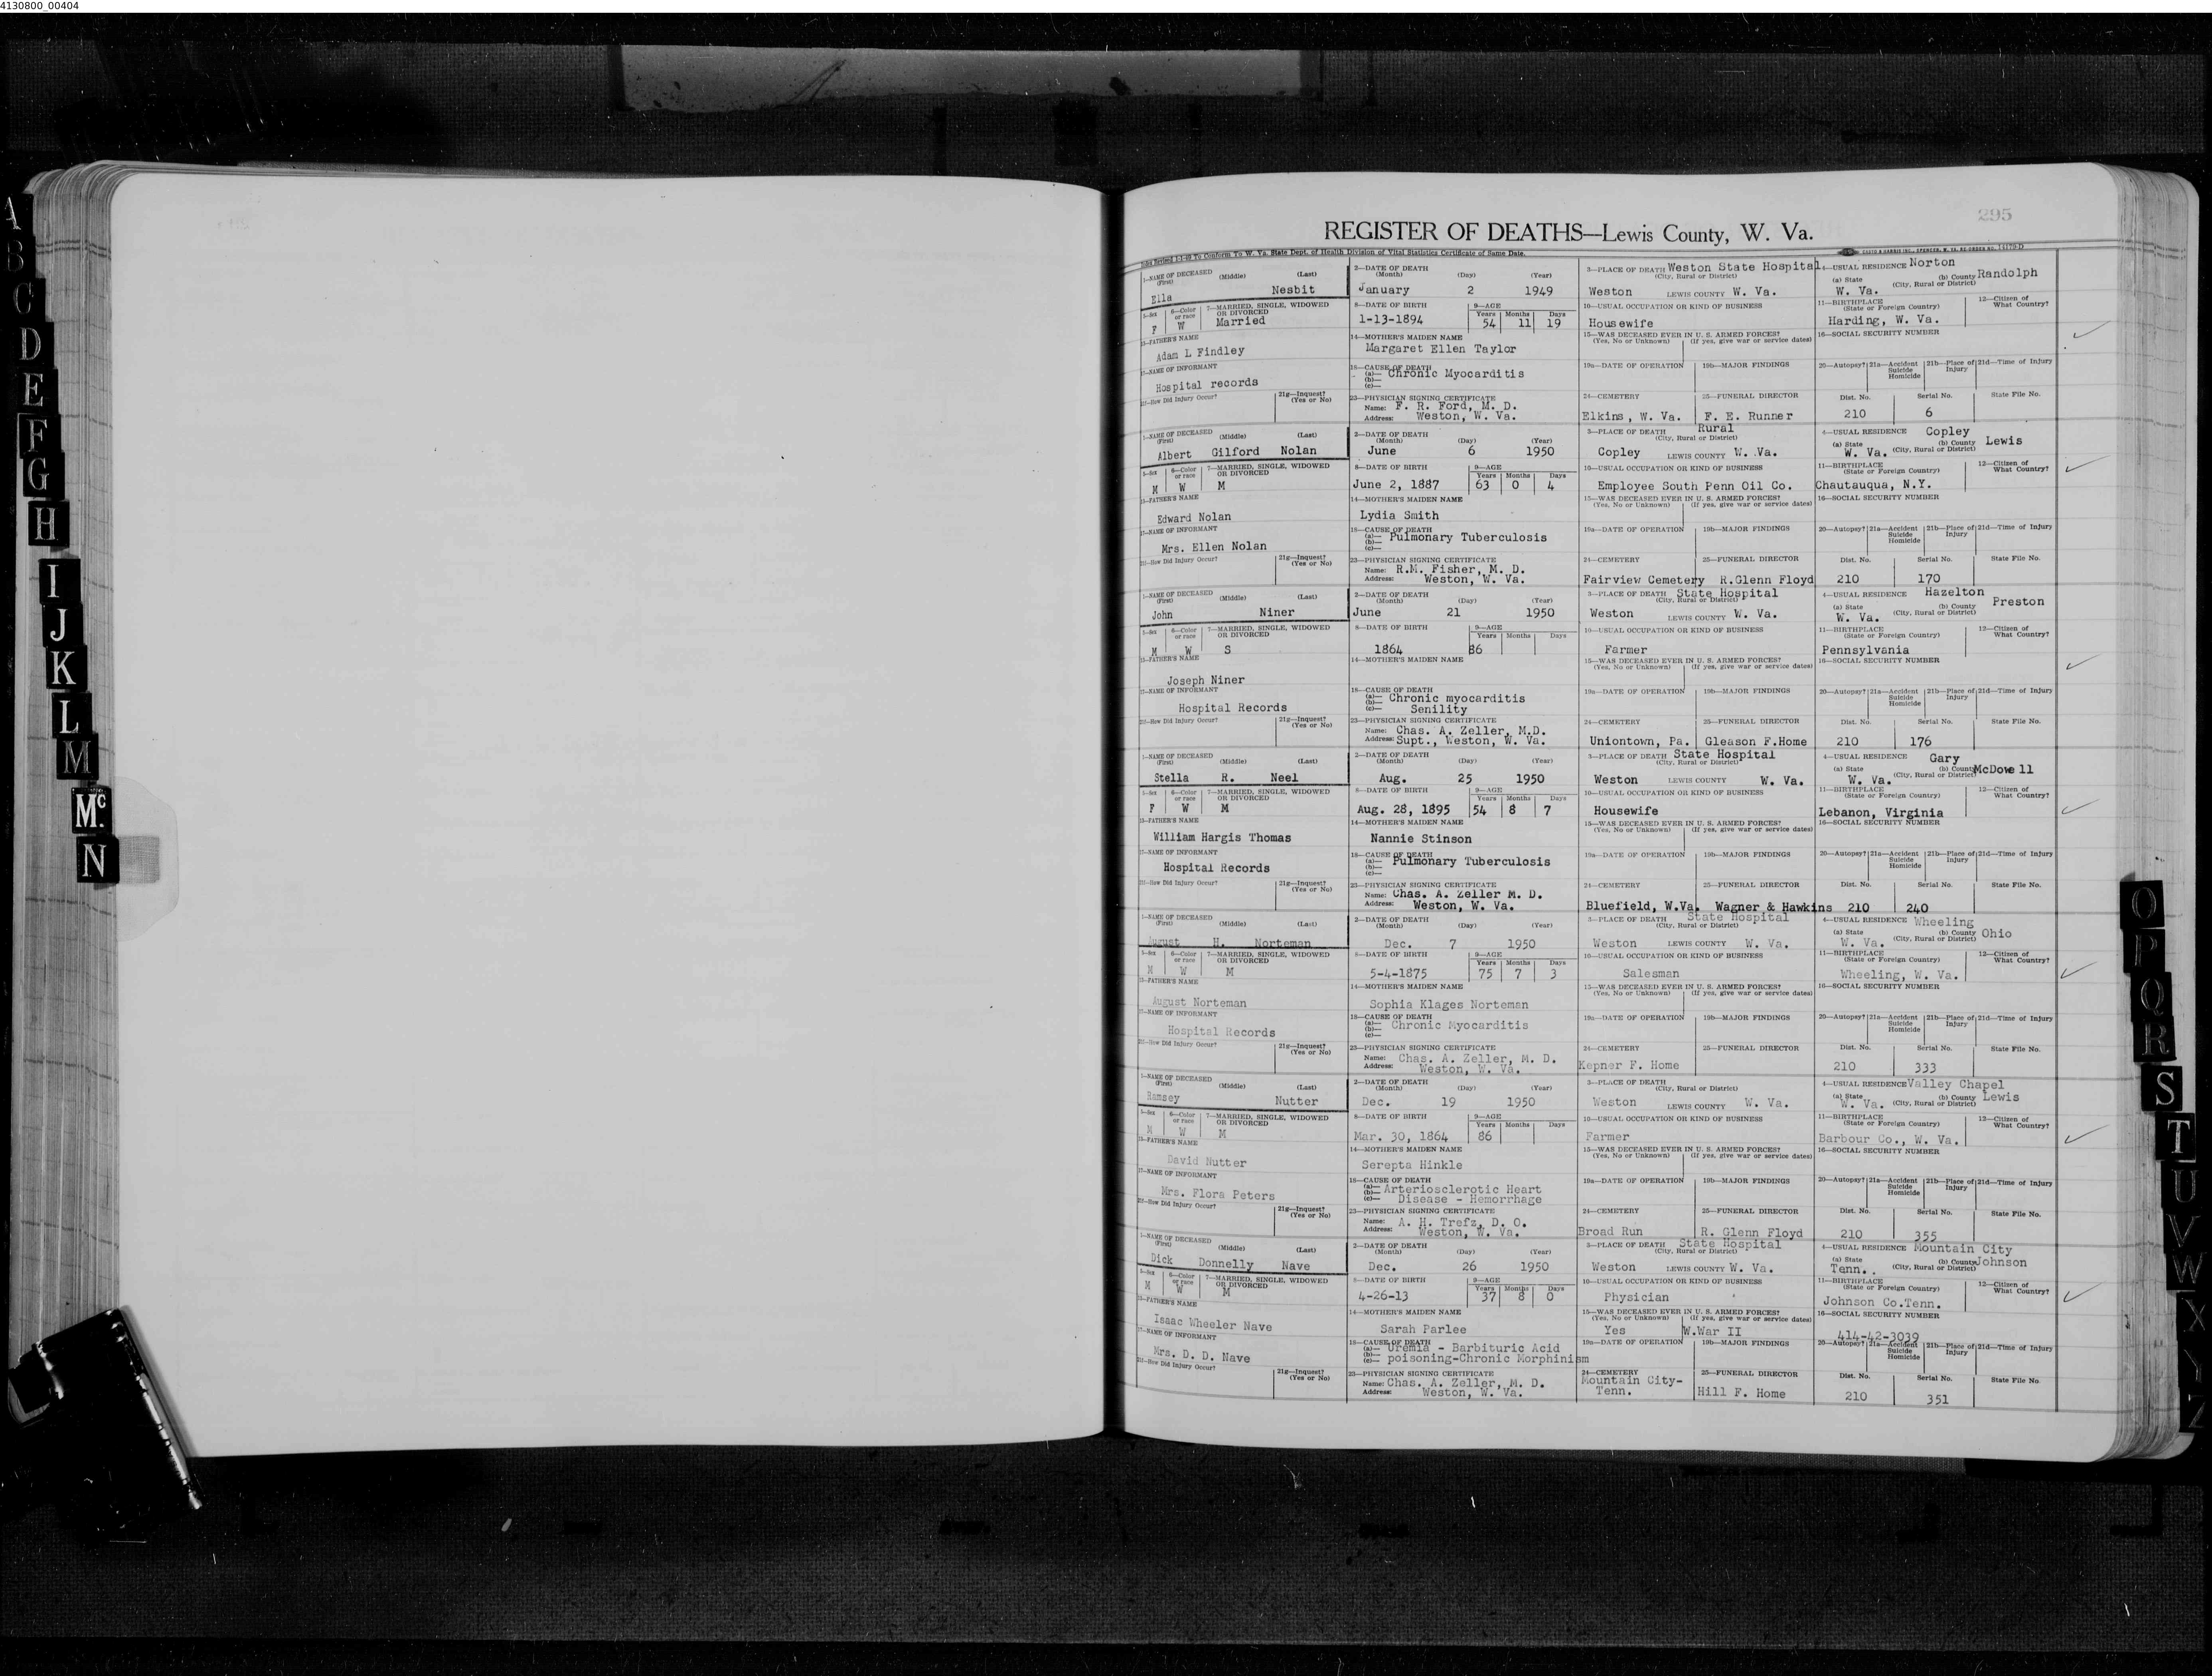 4130800_00404
295
REGISTER OF DEATHS—Lewis County, W. Va.
1—NAME OF DECEASED (First) (Middle) (Last) 2—DATE OF DEATH (Month) (Day) (Year) 3—PLACE OF DEATH Weston State Hospital 4—USUAL RESIDENCE Norton
Ella Nesbit January 2 1949 (City, Rural or District) Weston LEWIS COUNTY W. Va. (a) State W. Va. (b) County Randolph (City, Rural or District)
5—Sex F 6—Color or race W 7—MARRIED, SINGLE, WIDOWED OR DIVORCED Married 8—DATE OF BIRTH 1-13-1894 9—AGE Years 54 Months 11 Days 19 10—USUAL OCCUPATION OR KIND OF BUSINESS Housewife 11—BIRTHPLACE (State or Foreign Country) Harding, W. Va. 12—Citizen of What Country?
13—FATHER'S NAME Adam L Findley 14—MOTHER'S MAIDEN NAME Margaret Ellen Taylor 15—WAS DECEASED EVER IN U. S. ARMED FORCES? (Yes, No or Unknown) (If yes, give war or service dates) 16—SOCIAL SECURITY NUMBER
17—NAME OF INFORMANT Hospital records 18—CAUSE OF DEATH (a)— Chronic Myocarditis (b)— (c)— 19a—DATE OF OPERATION 19b—MAJOR FINDINGS 20—Autopsy? 21a—Accident Suicide Homicide 21b—Place of Injury 21d—Time of Injury
21f—How Did Injury Occur? 21g—Inquest? (Yes or No) 23—PHYSICIAN SIGNING CERTIFICATE Name: F. R. Ford, M. D. Address: Weston, W. Va. 24—CEMETERY Elkins, W. Va. 25—FUNERAL DIRECTOR F. E. Runner Dist. No. 210 Serial No. 6 State File No.
1—NAME OF DECEASED (First) (Middle) (Last) 2—DATE OF DEATH (Month) (Day) (Year) 3—PLACE OF DEATH Rural 4—USUAL RESIDENCE Copley
Albert Gilford Nolan June 6 1950 (City, Rural or District) Copley LEWIS COUNTY W. Va. (a) State W. Va. (b) County Lewis (City, Rural or District)
5—Sex M 6—Color or race W 7—MARRIED, SINGLE, WIDOWED OR DIVORCED M 8—DATE OF BIRTH June 2, 1887 9—AGE Years 63 Months 0 Days 4 10—USUAL OCCUPATION OR KIND OF BUSINESS Employee South Penn Oil Co. 11—BIRTHPLACE (State or Foreign Country) Chautauqua, N.Y. 12—Citizen of What Country?
13—FATHER'S NAME Edward Nolan 14—MOTHER'S MAIDEN NAME Lydia Smith 15—WAS DECEASED EVER IN U. S. ARMED FORCES? (Yes, No or Unknown) (If yes, give war or service dates) 16—SOCIAL SECURITY NUMBER
17—NAME OF INFORMANT Mrs. Ellen Nolan 18—CAUSE OF DEATH (a)— Pulmonary Tuberculosis (b)— (c)— 19a—DATE OF OPERATION 19b—MAJOR FINDINGS 20—Autopsy? 21a—Accident Suicide Homicide 21b—Place of Injury 21d—Time of Injury
21f—How Did Injury Occur? 21g—Inquest? (Yes or No) 23—PHYSICIAN SIGNING CERTIFICATE Name: R.M. Fisher, M. D. Address: Weston, W. Va. 24—CEMETERY Fairview Cemetery 25—FUNERAL DIRECTOR R.Glenn Floyd Dist. No. 210 Serial No. 170 State File No.
1—NAME OF DECEASED (First) (Middle) (Last) 2—DATE OF DEATH (Month) (Day) (Year) 3—PLACE OF DEATH State Hospital 4—USUAL RESIDENCE Hazelton
John Niner June 21 1950 (City, Rural or District) Weston LEWIS COUNTY W. Va. (a) State W. Va. (b) County Preston (City, Rural or District)
5—Sex M 6—Color or race W 7—MARRIED, SINGLE, WIDOWED OR DIVORCED S 8—DATE OF BIRTH 1864 9—AGE Years 86 Months Days 10—USUAL OCCUPATION OR KIND OF BUSINESS Farmer 11—BIRTHPLACE (State or Foreign Country) Pennsylvania 12—Citizen of What Country?
13—FATHER'S NAME Joseph Niner 14—MOTHER'S MAIDEN NAME 15—WAS DECEASED EVER IN U. S. ARMED FORCES? (Yes, No or Unknown) (If yes, give war or service dates) 16—SOCIAL SECURITY NUMBER
17—NAME OF INFORMANT Hospital Records 18—CAUSE OF DEATH (a)— Chronic myocarditis (b)— (c)— Senility 19a—DATE OF OPERATION 19b—MAJOR FINDINGS 20—Autopsy? 21a—Accident Suicide Homicide 21b—Place of Injury 21d—Time of Injury
21f—How Did Injury Occur? 21g—Inquest? (Yes or No) 23—PHYSICIAN SIGNING CERTIFICATE Name: Chas. A. Zeller, M.D. Address: Supt., Weston, W. Va. 24—CEMETERY Uniontown, Pa. 25—FUNERAL DIRECTOR Gleason F.Home Dist. No. 210 Serial No. 176 State File No.
1—NAME OF DECEASED (First) (Middle) (Last) 2—DATE OF DEATH (Month) (Day) (Year) 3—PLACE OF DEATH State Hospital 4—USUAL RESIDENCE Gary
Stella R. Neel Aug. 25 1950 (City, Rural or District) Weston LEWIS COUNTY W. Va. (a) State W. Va. (b) County McDowell (City, Rural or District)
5—Sex F 6—Color or race W 7—MARRIED, SINGLE, WIDOWED OR DIVORCED M 8—DATE OF BIRTH Aug. 28, 1895 9—AGE Years 54 Months 8 Days 7 10—USUAL OCCUPATION OR KIND OF BUSINESS Housewife 11—BIRTHPLACE (State or Foreign Country) Lebanon, Virginia 12—Citizen of What Country?
13—FATHER'S NAME William Hargis Thomas 14—MOTHER'S MAIDEN NAME Nannie Stinson 15—WAS DECEASED EVER IN U. S. ARMED FORCES? (Yes, No or Unknown) (If yes, give war or service dates) 16—SOCIAL SECURITY NUMBER
17—NAME OF INFORMANT Hospital Records 18—CAUSE OF DEATH (a)— Pulmonary Tuberculosis (b)— (c)— 19a—DATE OF OPERATION 19b—MAJOR FINDINGS 20—Autopsy? 21a—Accident Suicide Homicide 21b—Place of Injury 21d—Time of Injury
21f—How Did Injury Occur? 21g—Inquest? (Yes or No) 23—PHYSICIAN SIGNING CERTIFICATE Name: Chas. A. Zeller M. D. Address: Weston, W. Va. 24—CEMETERY Bluefield, W.Va. 25—FUNERAL DIRECTOR Wagner & Hawkins Dist. No. 210 Serial No. 240 State File No.
1—NAME OF DECEASED (First) (Middle) (Last) 2—DATE OF DEATH (Month) (Day) (Year) 3—PLACE OF DEATH State Hospital 4—USUAL RESIDENCE Wheeling
August H. Norteman Dec. 7 1950 (City, Rural or District) Weston LEWIS COUNTY W. Va. (a) State W. Va. (b) County Ohio (City, Rural or District)
5—Sex M 6—Color or race W 7—MARRIED, SINGLE, WIDOWED OR DIVORCED M 8—DATE OF BIRTH 5-4-1875 9—AGE Years 75 Months 7 Days 3 10—USUAL OCCUPATION OR KIND OF BUSINESS Salesman 11—BIRTHPLACE (State or Foreign Country) Wheeling, W. Va. 12—Citizen of What Country?
13—FATHER'S NAME August Norteman 14—MOTHER'S MAIDEN NAME Sophia Klages Norteman 15—WAS DECEASED EVER IN U. S. ARMED FORCES? (Yes, No or Unknown) (If yes, give war or service dates) 16—SOCIAL SECURITY NUMBER
17—NAME OF INFORMANT Hospital Records 18—CAUSE OF DEATH (a)— Chronic Myocarditis (b)— (c)— 19a—DATE OF OPERATION 19b—MAJOR FINDINGS 20—Autopsy? 21a—Accident Suicide Homicide 21b—Place of Injury 21d—Time of Injury
21f—How Did Injury Occur? 21g—Inquest? (Yes or No) 23—PHYSICIAN SIGNING CERTIFICATE Name: Chas. A. Zeller, M. D. Address: Weston, W. Va. 24—CEMETERY Kepner F. Home 25—FUNERAL DIRECTOR Dist. No. 210 Serial No. 333 State File No.
1—NAME OF DECEASED (First) (Middle) (Last) 2—DATE OF DEATH (Month) (Day) (Year) 3—PLACE OF DEATH 4—USUAL RESIDENCE Valley Chapel
Ramsey Nutter Dec. 19 1950 (City, Rural or District) Weston LEWIS COUNTY W. Va. (a) State W. Va. (b) County Lewis (City, Rural or District)
5—Sex M 6—Color or race W 7—MARRIED, SINGLE, WIDOWED OR DIVORCED M 8—DATE OF BIRTH Mar. 30, 1864 9—AGE Years 86 Months Days 10—USUAL OCCUPATION OR KIND OF BUSINESS Farmer 11—BIRTHPLACE (State or Foreign Country) Barbour Co., W. Va. 12—Citizen of What Country?
13—FATHER'S NAME David Nutter 14—MOTHER'S MAIDEN NAME Serepta Hinkle 15—WAS DECEASED EVER IN U. S. ARMED FORCES? (Yes, No or Unknown) (If yes, give war or service dates) 16—SOCIAL SECURITY NUMBER
17—NAME OF INFORMANT Mrs. Flora Peters 18—CAUSE OF DEATH (a)— (b)— Arteriosclerotic Heart (c)— Disease - Hemorrhage 19a—DATE OF OPERATION 19b—MAJOR FINDINGS 20—Autopsy? 21a—Accident Suicide Homicide 21b—Place of Injury 21d—Time of Injury
21f—How Did Injury Occur? 21g—Inquest? (Yes or No) 23—PHYSICIAN SIGNING CERTIFICATE Name: A. H. Trefz, D. O. Address: Weston, W. Va. 24—CEMETERY Broad Run 25—FUNERAL DIRECTOR R. Glenn Floyd Dist. No. 210 Serial No. 355 State File No.
1—NAME OF DECEASED (First) (Middle) (Last) 2—DATE OF DEATH (Month) (Day) (Year) 3—PLACE OF DEATH State Hospital 4—USUAL RESIDENCE Mountain City
Dick Donnelly Nave Dec. 26 1950 (City, Rural or District) Weston LEWIS COUNTY W. Va. (a) State Tenn. (b) County Johnson (City, Rural or District)
5—Sex M 6—Color or race W 7—MARRIED, SINGLE, WIDOWED OR DIVORCED M 8—DATE OF BIRTH 4-26-13 9—AGE Years 37 Months 8 Days 0 10—USUAL OCCUPATION OR KIND OF BUSINESS Physician 11—BIRTHPLACE (State or Foreign Country) Johnson Co.Tenn. 12—Citizen of What Country?
13—FATHER'S NAME Isaac Wheeler Nave 14—MOTHER'S MAIDEN NAME Sarah Parlee 15—WAS DECEASED EVER IN U. S. ARMED FORCES? (Yes, No or Unknown) Yes (If yes, give war or service dates) W.War II 16—SOCIAL SECURITY NUMBER 414-42-3039
17—NAME OF INFORMANT Mrs. D. D. Nave 18—CAUSE OF DEATH (a)— Uremia - Barbituric Acid (b)— (c)— poisoning-Chronic Morphinism 19a—DATE OF OPERATION 19b—MAJOR FINDINGS 20—Autopsy? 21a—Accident Suicide Homicide 21b—Place of Injury 21d—Time of Injury
21f—How Did Injury Occur? 21g—Inquest? (Yes or No) 23—PHYSICIAN SIGNING CERTIFICATE Name: Chas. A. Zeller, M. D. Address: Weston, W. Va. 24—CEMETERY Mountain City- Tenn. 25—FUNERAL DIRECTOR Hill F. Home Dist. No. 210 Serial No. 351 State File No.
A
B
C
D
E
F
G
H
I
J
K
L
M
Mc.
N
O
P
Q
R
S
T
U
V
W
X
Y
Z